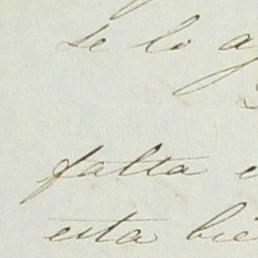 se lo
falta
esta bie